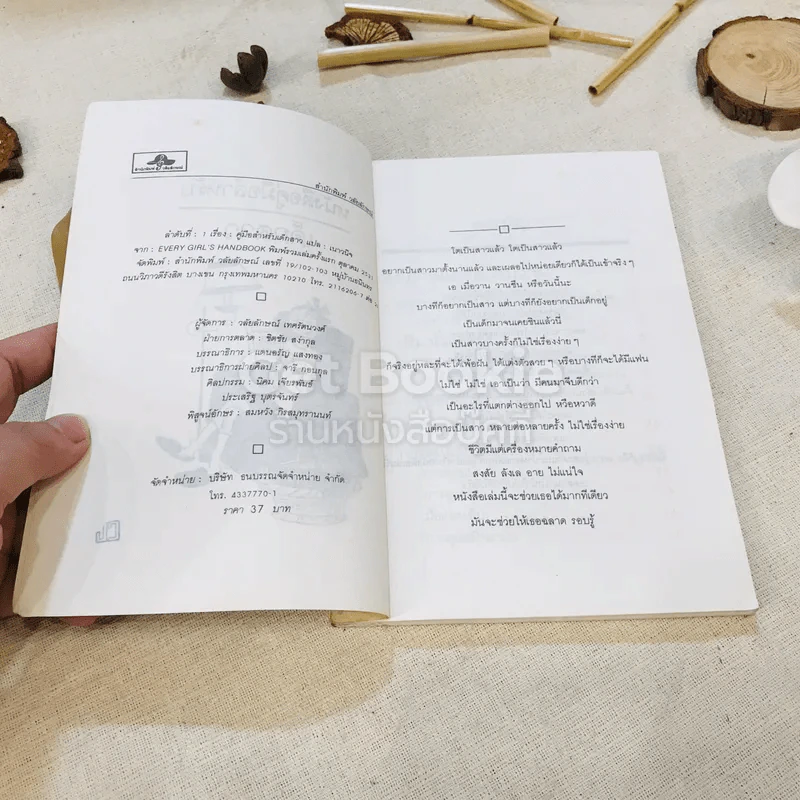 สำนักพิมพ์ วลัยลักษณ์
ลำดับที่ : 1 เรื่อง : คู่มือสำหรับเด็กสาว แปล : เนาวนิจ
จาก : EVERY GIRL'S HANDBOOK พิมพ์รวมเล่มครั้งแรก ตุลาคม
จัดพิมพ์ : สำนักพิมพ์ วลัยลักษณ์ เลขที่ 19/102-103 หมู่บ้านอมรินทร์
ถนนวิภาวดีรังสิต บางเขน กรุงเทพมหานคร 10210 โทร. 2116206-7 ต่อ
ผู้จัดการ : วลัยลักษณ์ เทศรัตนวงศ์
ฝ่ายการตลาด : ชิตชัย สง่ากุล
บรรณาธิการ : แดนอรัญ แสงทอง
บรรณาธิการฝ่ายศิลป์ : จารี กอนกุล
ศิลปกรรม : นิคม เจียรพันธ์
ประเสริฐ บุตรจันทร์
พิสูจน์อักษร : สมหวัง กิรสมุทรานนท์
จัดจำหน่าย : บริษัท ธนบรรณจัดจำหน่าย จำกัด
โทร. 4337770-1
ราคา 37 บาท
โตเป็นสาวแล้ว โตเป็นสาวแล้ว
อยากเป็นสาวมาตั้งนานแล้ว และเผลอไปหน่อยเดียวก็ได้เป็นเข้าจริงๆ
เอ เมื่อวาน วานซืน หรือวันนี้นะ
บางทีก็อยากเป็นสาว แต่บางทีก็ยังอยากเป็นเด็กอยู่
เป็นเด็กมาจนเคยชินแล้วนี่
เป็นสาวบางครั้งก็ไม่ใช่เรื่องง่ายๆ
ก็จริงอยู่หละที่จะได้เพ้อฝัน ได้แต่งตัวสวยๆ หรือบางทีก็จะได้มีแฟน
ไม่ใช่ ไม่ใช่ เอาเป็นว่า มีคนมาจีบดีกว่า
เป็นอะไรที่แตกต่างออกไป หวือหวาดี
แต่การเป็นสาว หลายต่อหลายครั้ง ไม่ใช่เรื่องง่าย
ชีวิตมีแต่เครื่องหมายคำถาม
สงสัย ลังเล อาย ไม่แน่ใจ
หนังสือเล่มนี้จะช่วยเธอได้มากทีเดียว
มันจะช่วยให้เธอฉลาด รอบรู้
Get Bookie
ร้านหนังสือบุคคี่